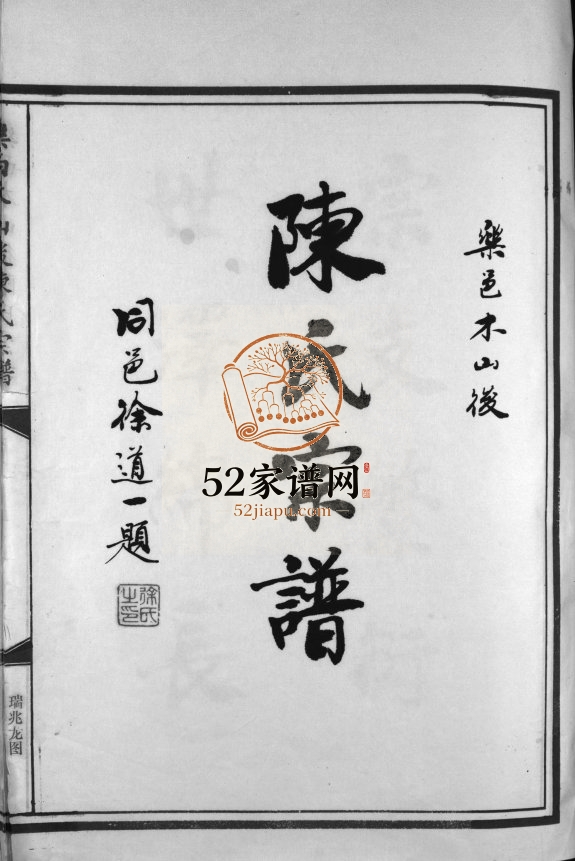 樂邑木山後
陳氏宗譜
52家谱网
52jiapu.com
同邑徐道一題
徐氏之印
木山後陳氏宗譜
瑞兆龙图